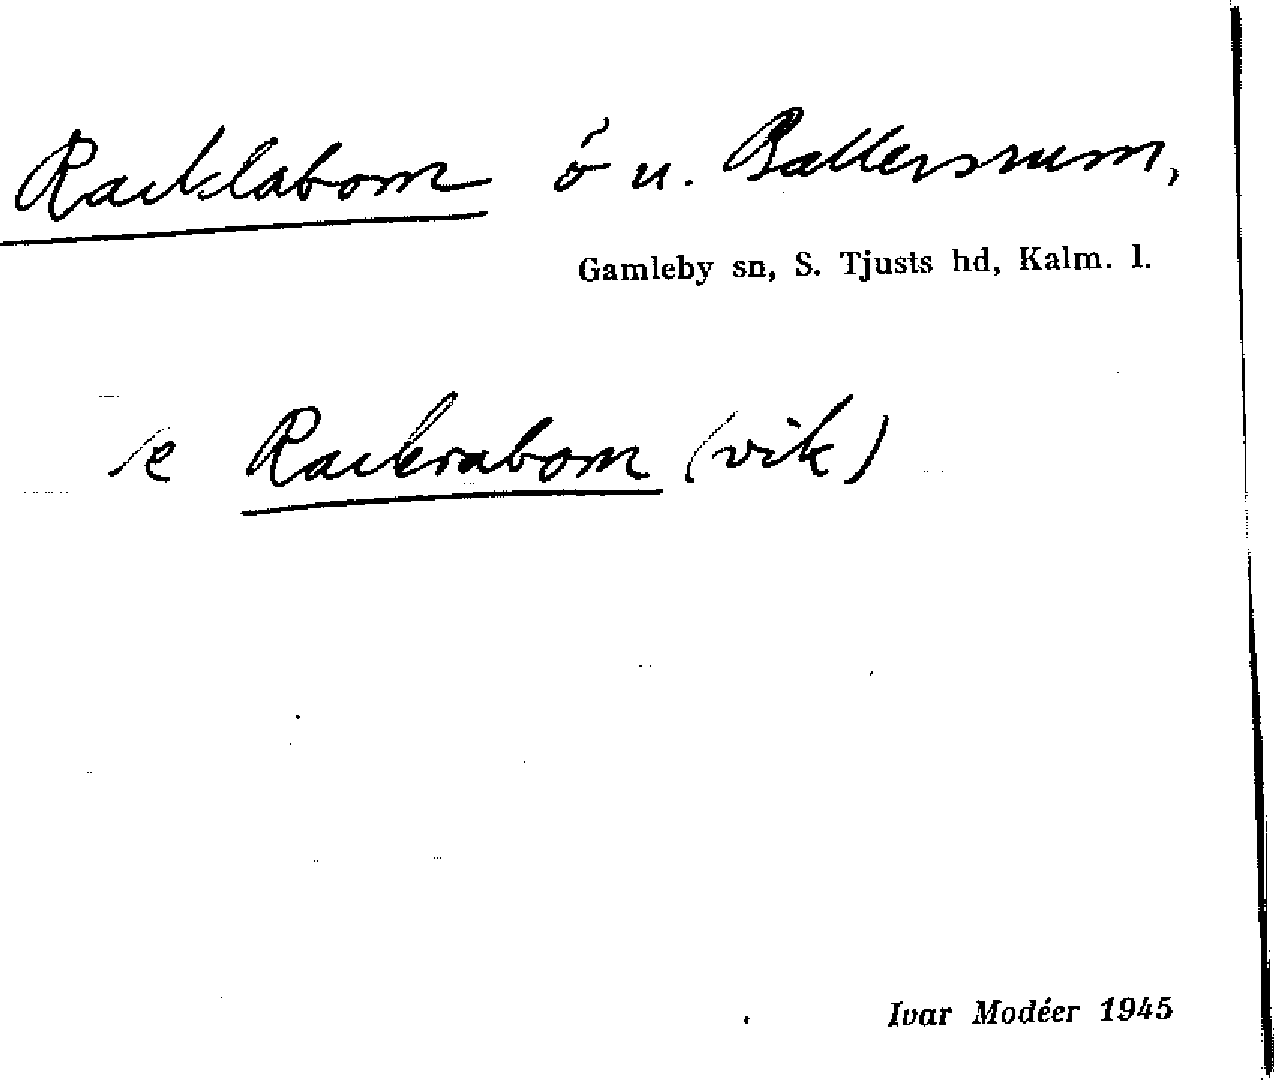 Racklaborn ö u. Ballersrum,
Gamleby sn, S. Tjusts hd, Kalm. l.
se Rackraborn (vik)
Ivar Modéer 1945